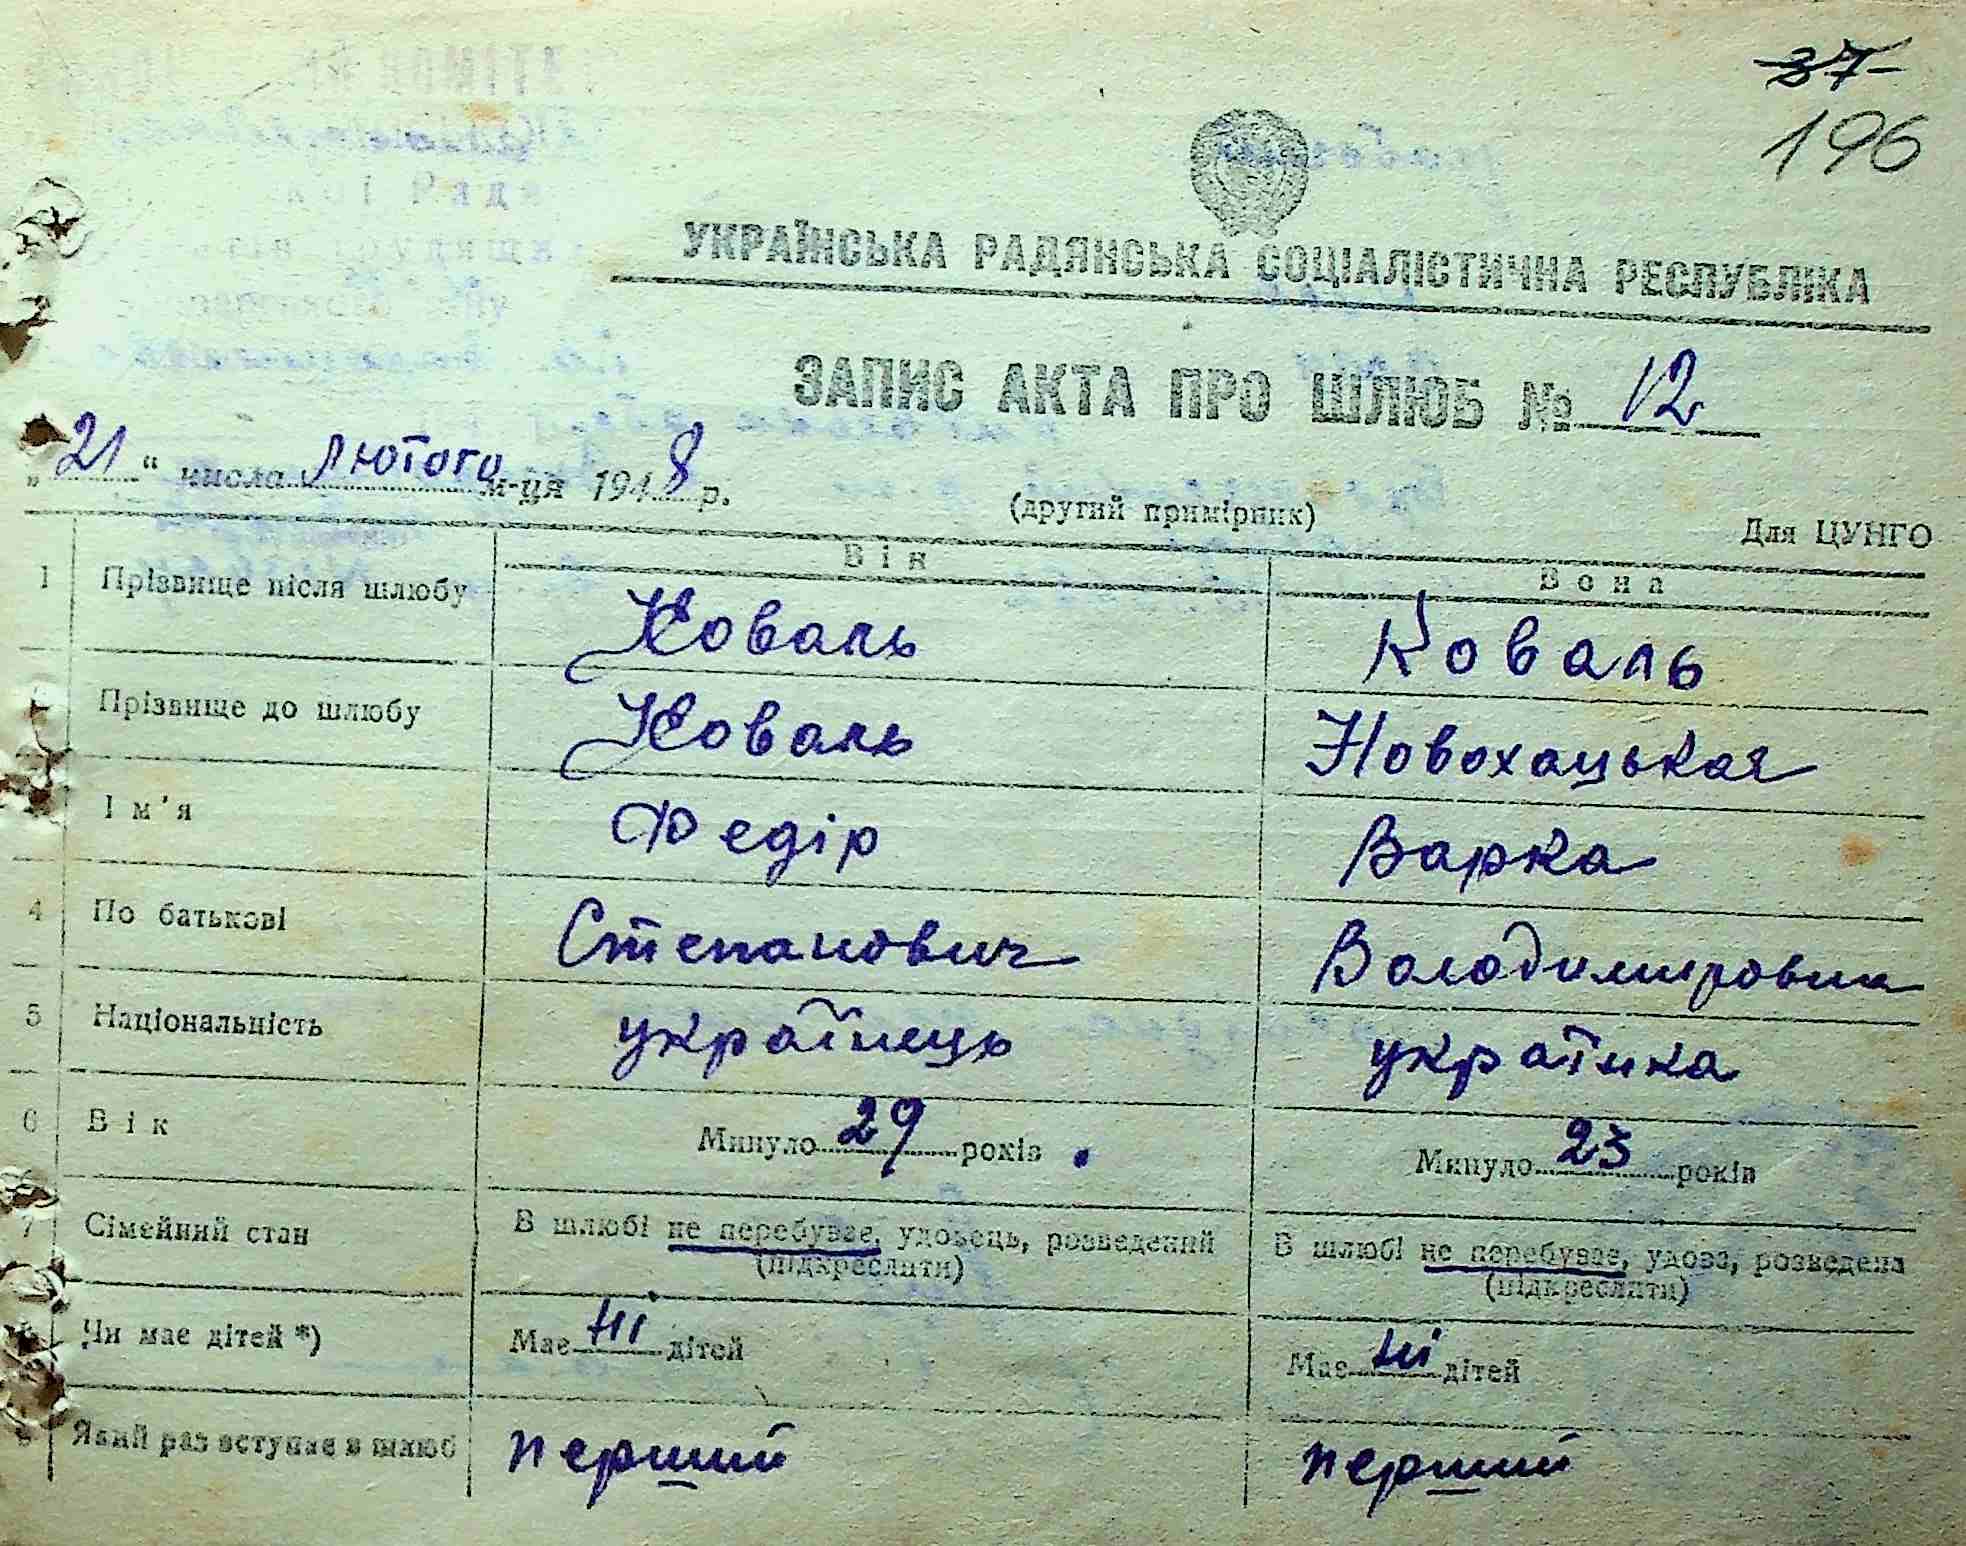 37
196
УКРАЇНСЬКА РАДЯНСЬКА СОЦІАЛІСТИЧНА РЕСПУБЛІКА
ЗАПИС АКТА ПРО ШЛЮБ № 12
„21“ числа лютого м-ця 1948 р.
(другий примірник)
Для ЦУНГО
Він Вона
1 Прізвище після шлюбу Коваль Коваль
Прізвище до шлюбу Коваль Новохацькая
Ім'я Федір Варка
4 По батькові Степанович Володимировна
5 Національність українець українка
6 Вік Минуло 29 років Минуло 23 років
7 Сімейний стан В шлюбі не перебуває, удовець, розведений В шлюбі не перебуває, удова, розведена
(підкреслити) (підкреслити)
Чи має дітей *) Має ні дітей Має ні дітей
Який раз вступає в шлюб перший перший